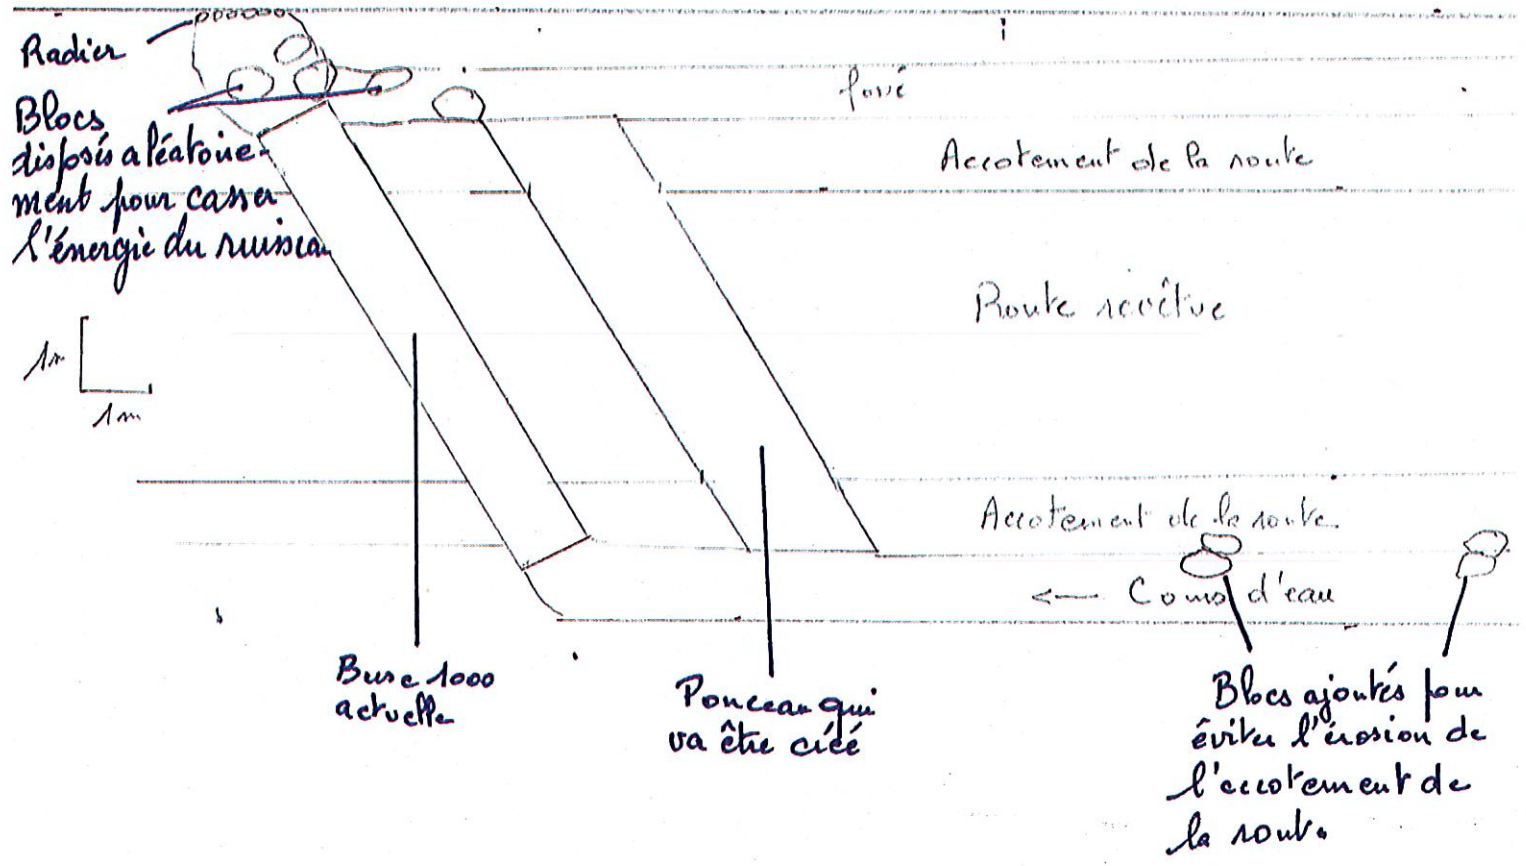 Radier
Blocs
disposés aléatoire-
ment pour casser
l'énergie du ruisseau
fossé
Accotement de la route
Route revêtue
1m
1m
Accotement de la route
← Cours d'eau
Buse 1000
actuelle
Ponceau qui
va être créé
Blocs ajoutés pour
éviter l'érosion de
l'accotement de
la route